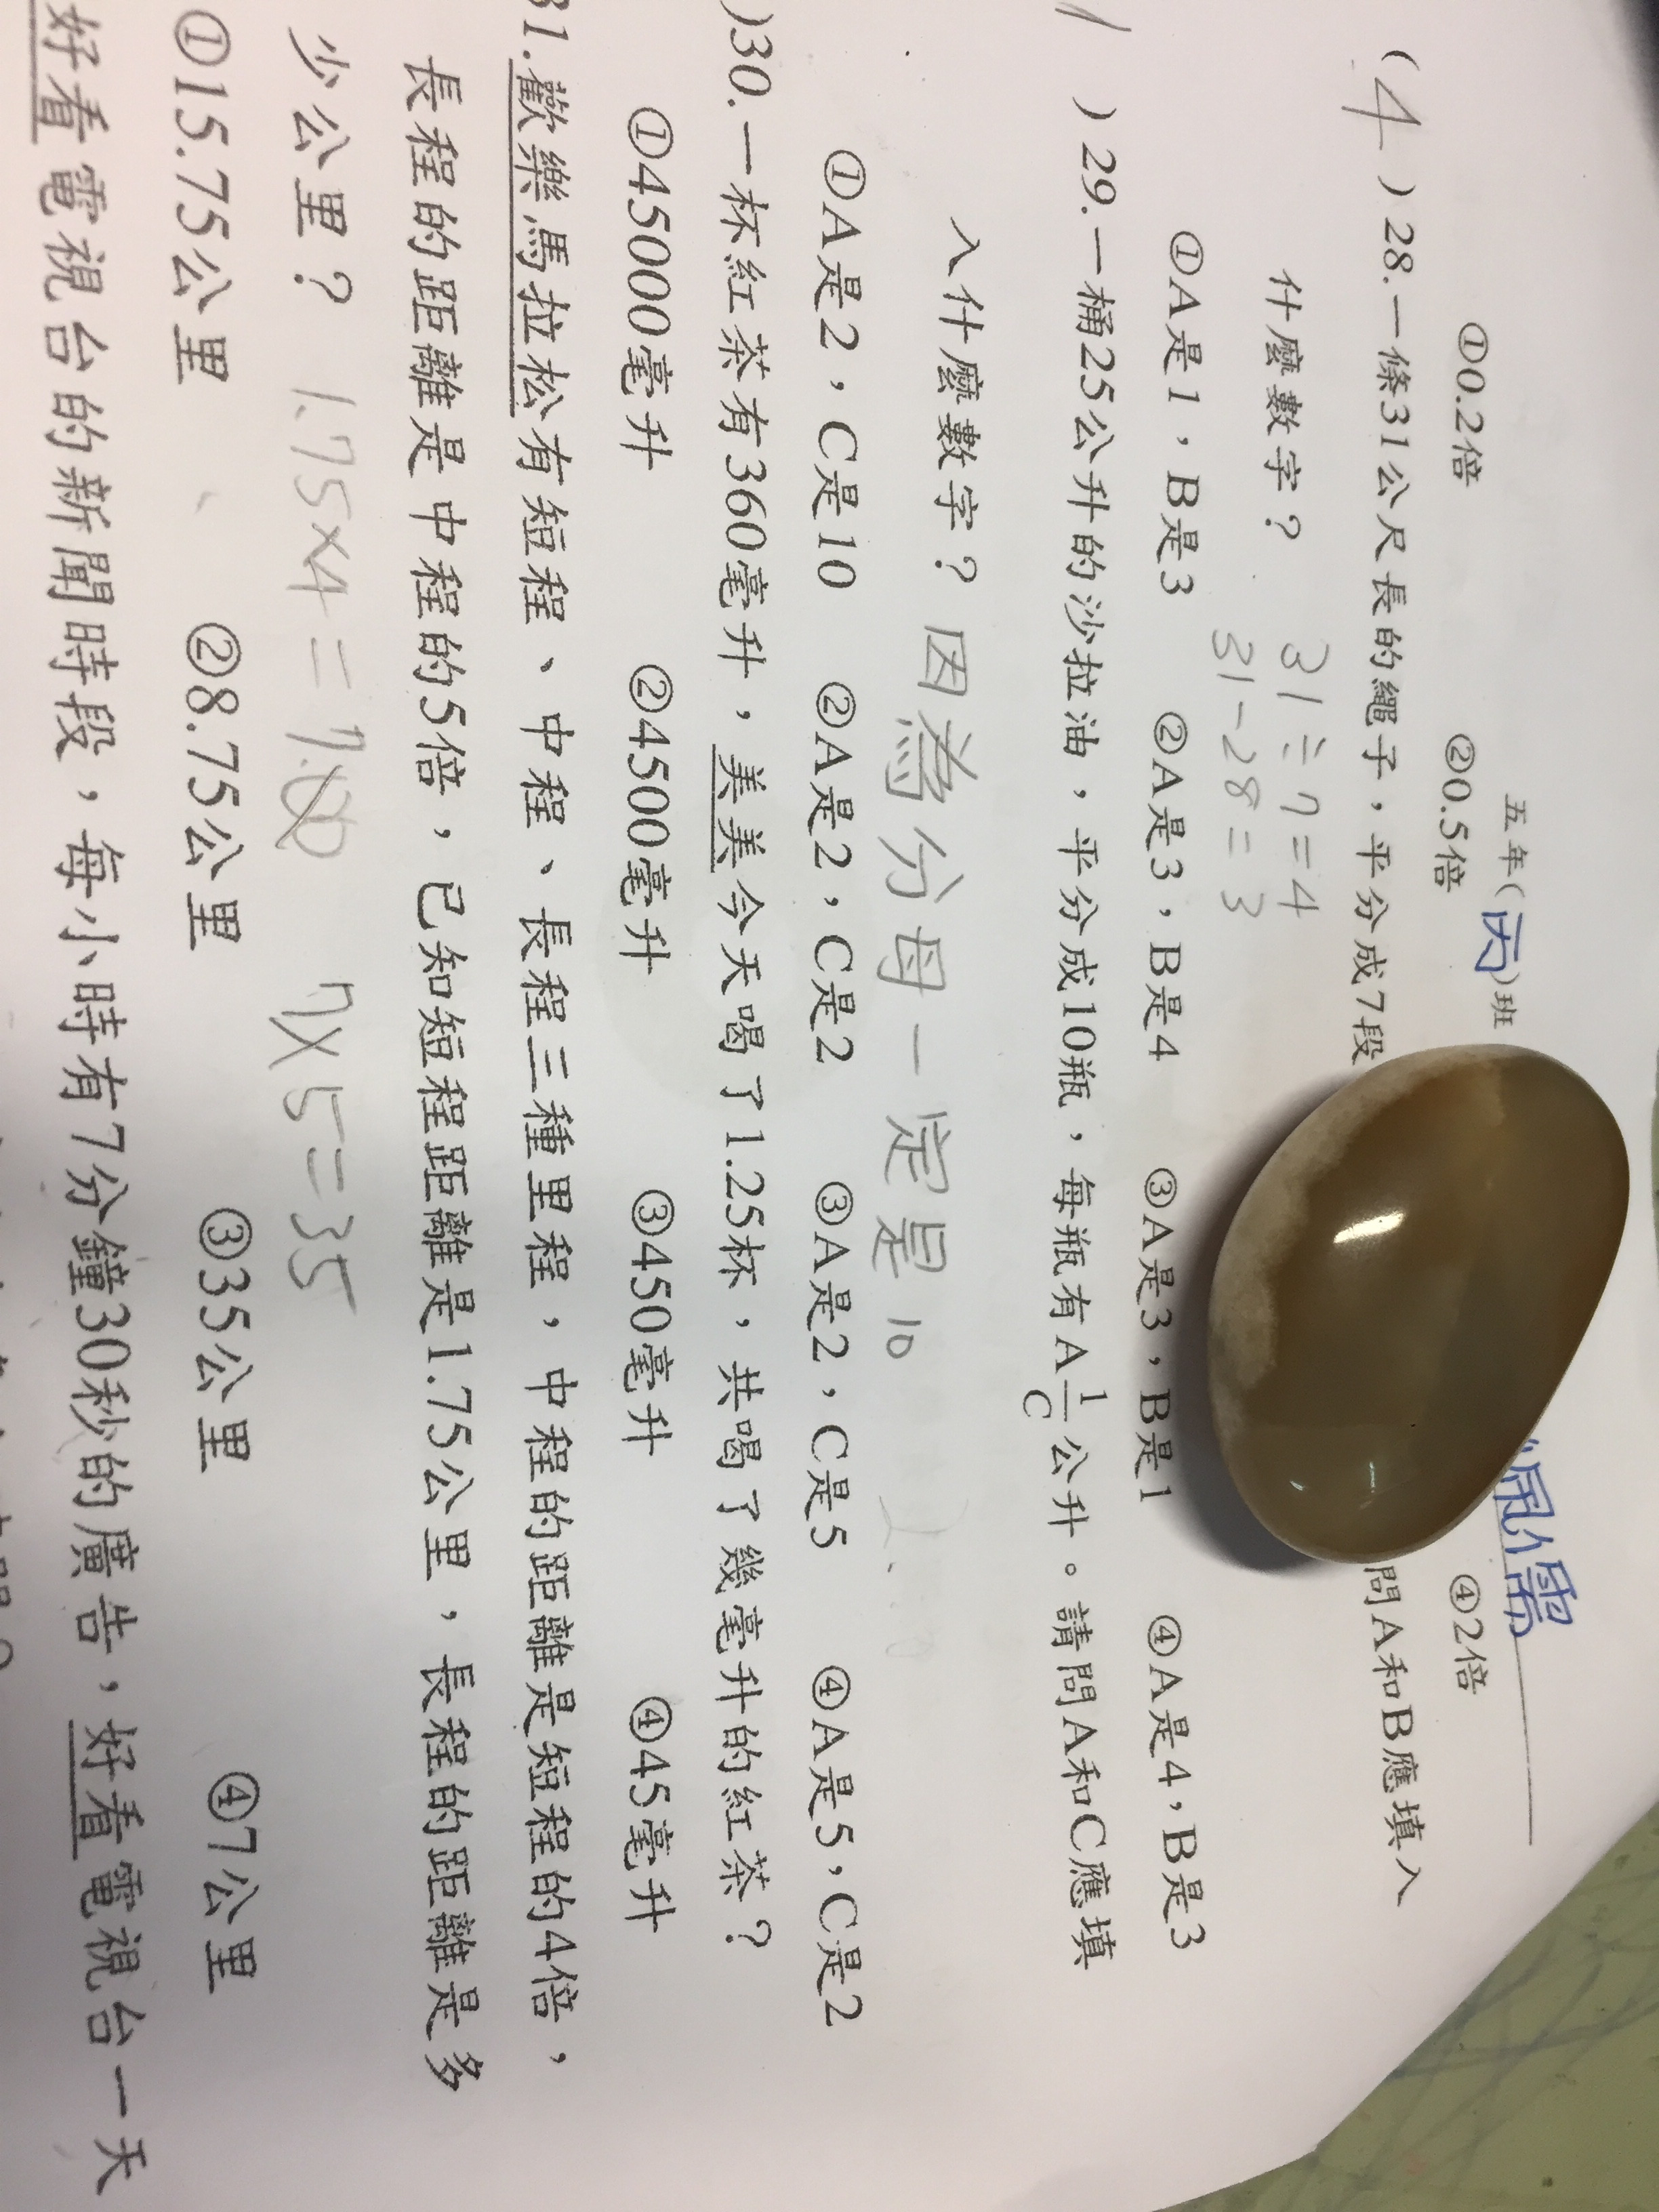 五年(天)班
①0.2倍 ②0.5倍 ④2倍
(4)28.一條31公尺長的繩子，平分成7段 問A和B應填入
什麼數字？ 31÷7=4
31-28=3
①A是1，B是3 ②A是3，B是4 ③A是3，B是1 ④A是4，B是3
1 )29.一桶25公升的沙拉油，平分成10瓶，每瓶有A1/C公升。請問A和C應填
入什麼數字？因為分母一定是10
①A是2，C是10 ②A是2，C是2 ③A是2，C是5 ④A是5，C是2
)30.一杯紅茶有360毫升，美美今天喝了1.25杯，共喝了幾毫升的紅茶？
①45000毫升 ②4500毫升 ③450毫升 ④45毫升
31.歡樂馬拉松有短程、中程、長程三種里程，中程的距離是短程的4倍，
長程的距離是中程的5倍，已知短程距離是1.75公里，長程的距離是多
少公里？ 1.75×4=7.00 7×5=35
①15.75公里 ②8.75公里 ③35公里 ④7公里
好看電視台的新聞時段，每小時有7分鐘30秒的廣告，好看電視台一天